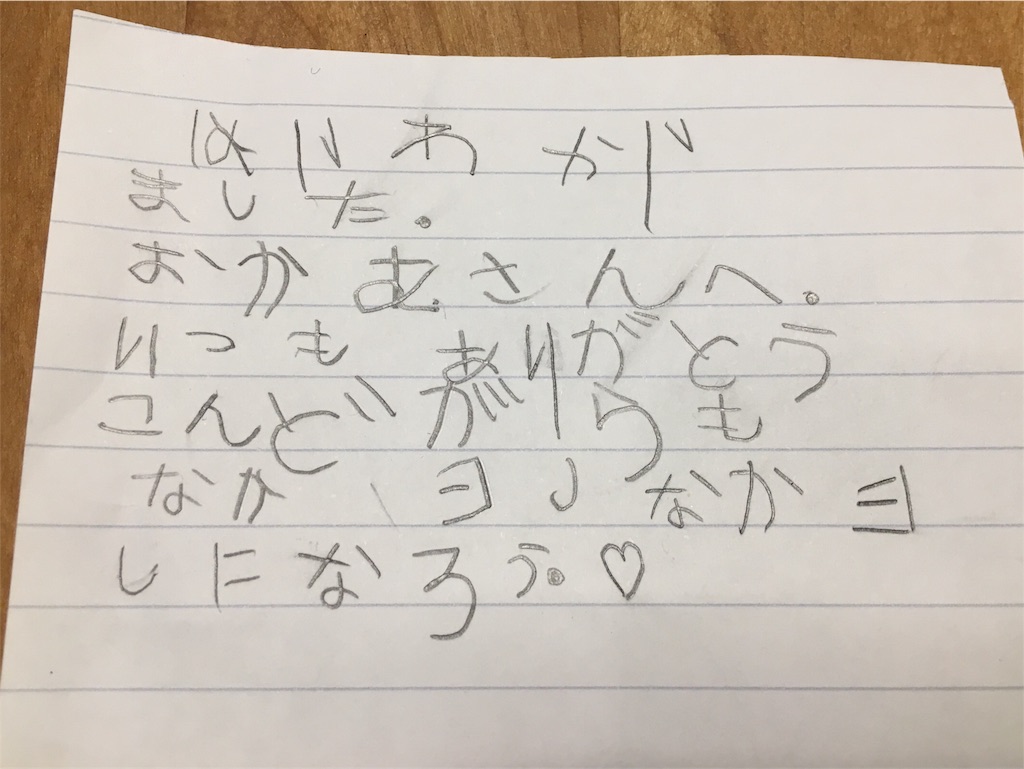 はじわ かじ
ました。
おかむさんへ。
いつも ありがとう
こんどがらも
なか ヨし なかヨ
しになろう。♡